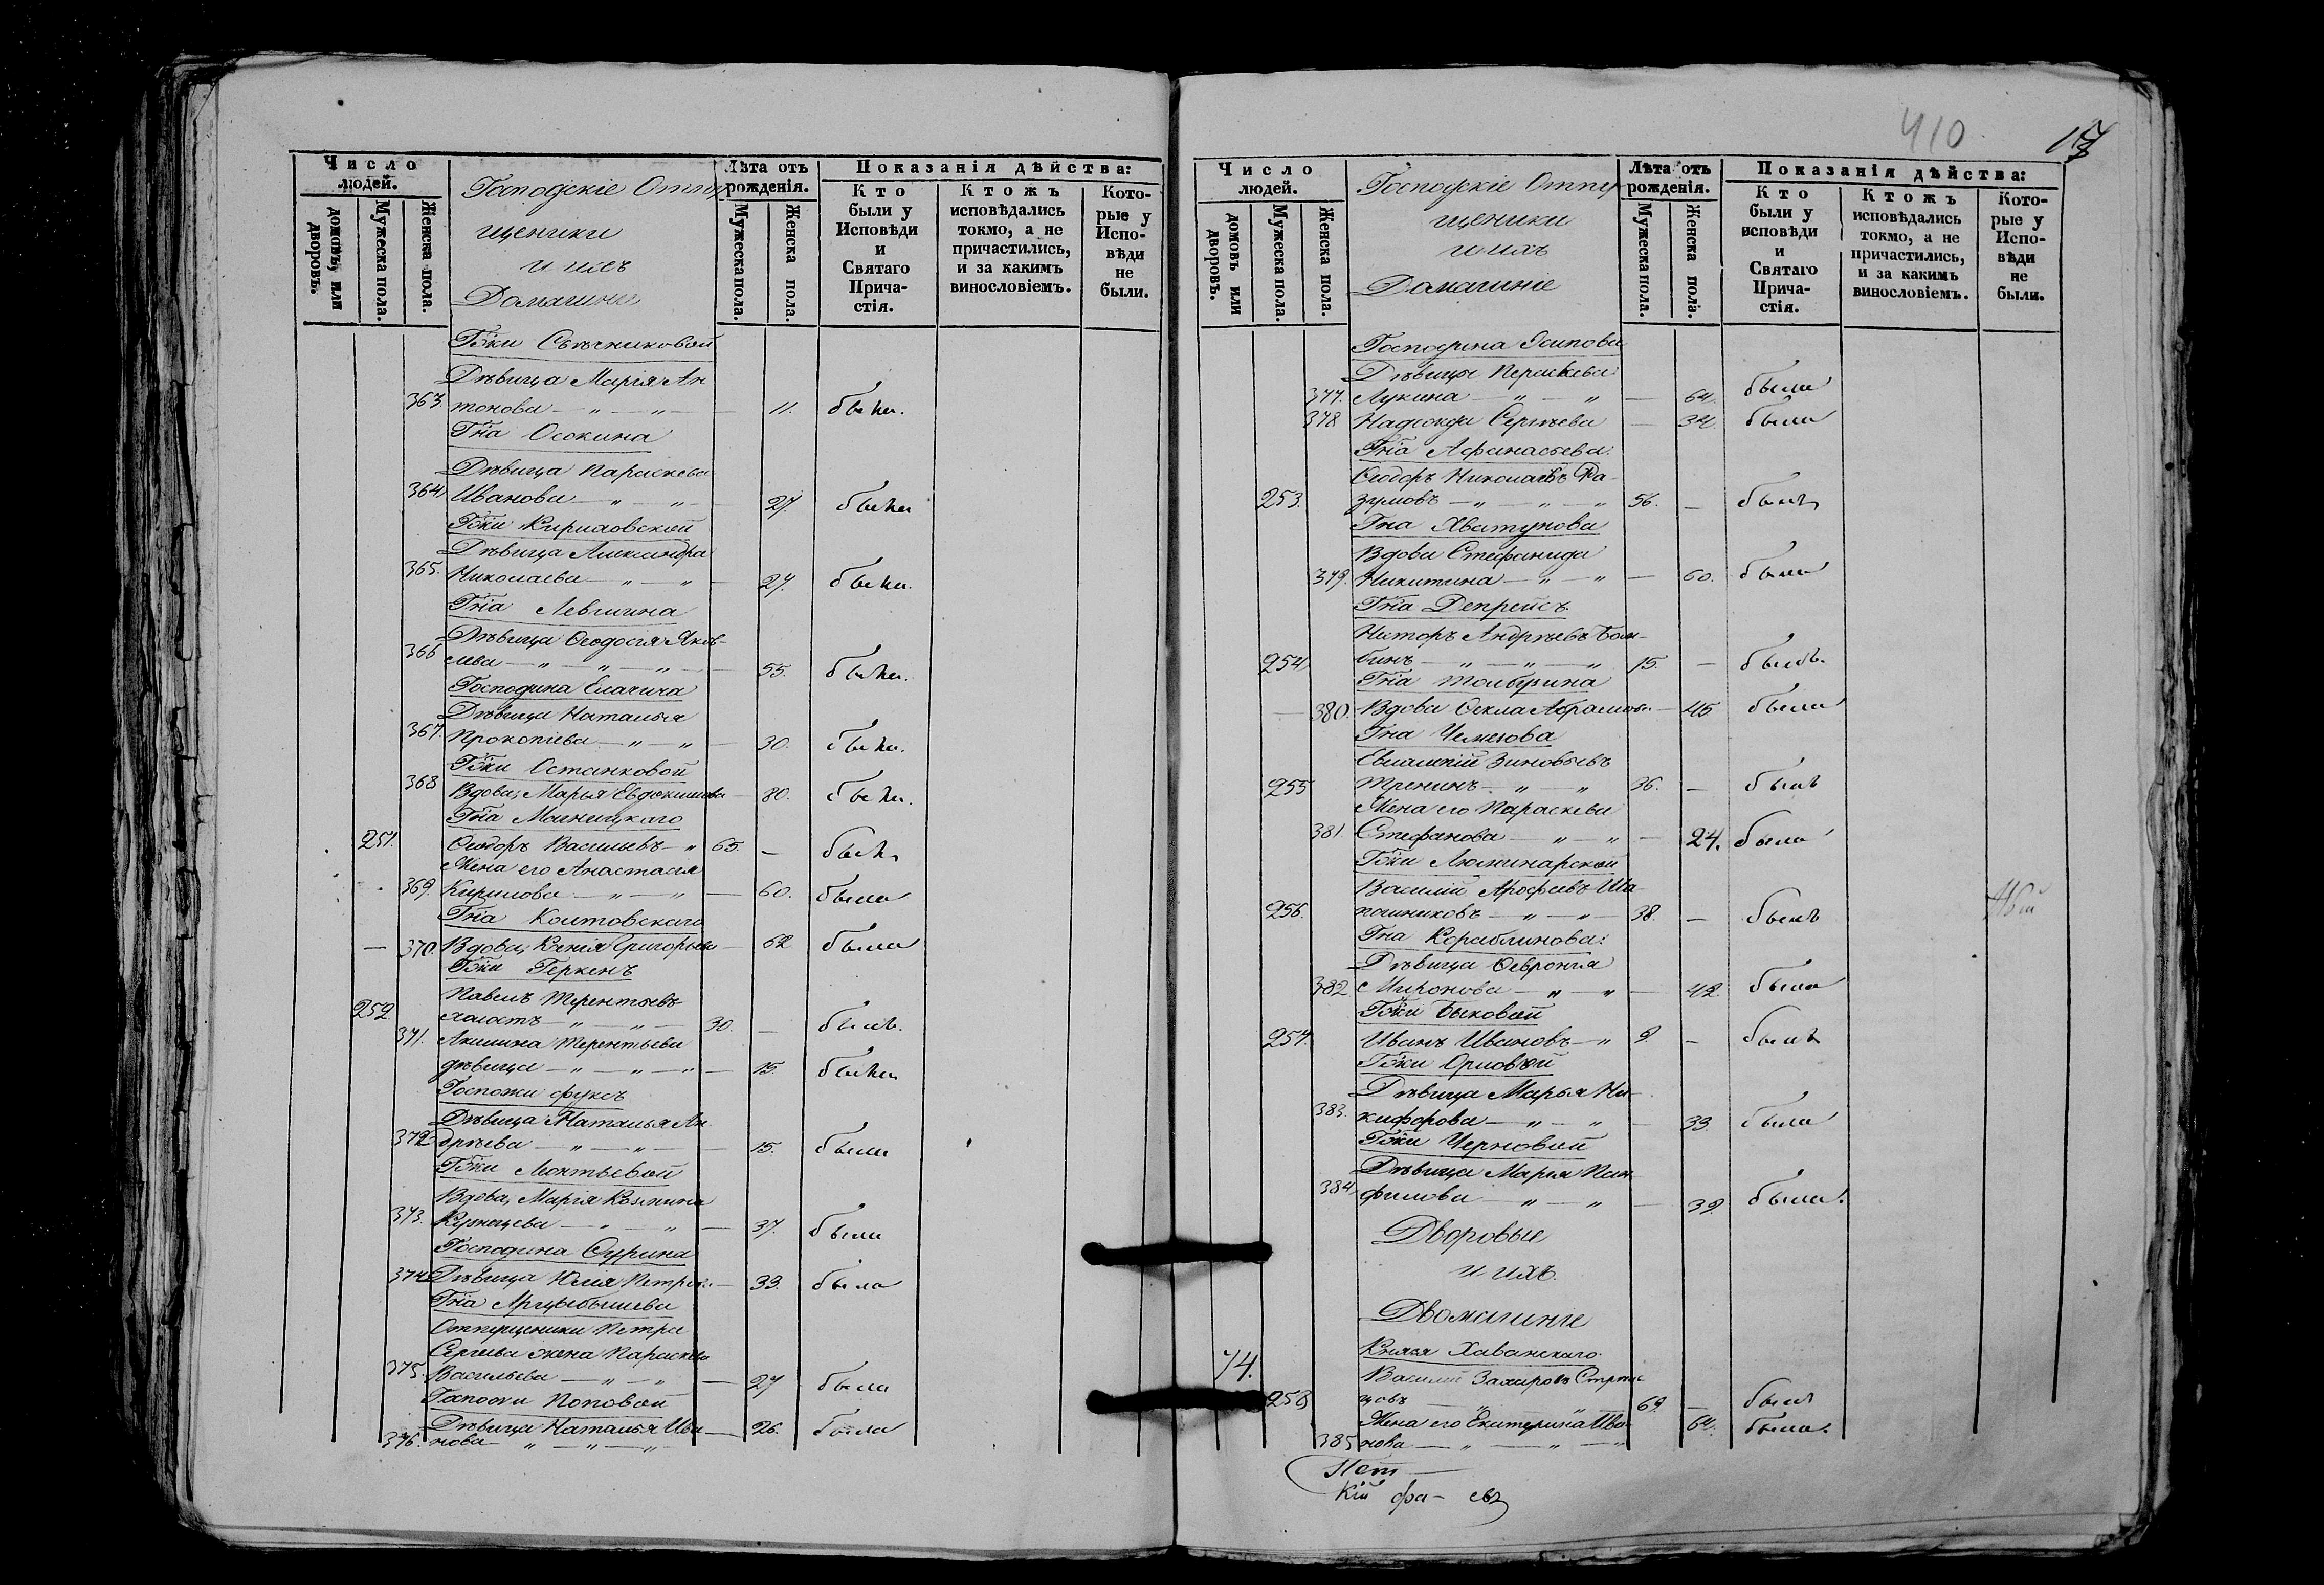 Число людей.
домовъ, или дворовъ.
Мужеска пола.
Женска пола.
Господскіе Отпу
щеники
и ихъ
Домашніе
Лѣта отъ рожденія.
Мужеска пола.
Женска пола.
Показанія дѣйства:
Кто были у Исповѣди и Святаго Прича-стія.
Ктожъ исповѣдались токмо, а не причастились, и за какимъ винословіемъ.
Кото-рые у Испо-вѣди не были.
Гжи Свѣчниковой
Дѣвица Марія Ан
363. тонова — " — " — 11. была.
Гна Осокина
Дѣвица Параскева
364 Иванова — " — " — 27. была
Гжи Кириловской
Дѣвица Александра
365. Николаева — " — " — 27. была.
Гна Левшина
Дѣвица Ѳеодосія Яков-
366 лева — " — " — " — 55. была.
Господина Елагича
Дѣвица Наталья
367. Прокопіева — " — " — 30. была.
Гжи Останковой
368 Вдова, Марья Евдокимова — 80. была.
Гна
251. Ѳеодоръ Васильевъ — " 65. — былъ
Жена его Анастасія
369. Кирилова — " — " — 60. была
Гна Колтовскаго
— 370. Вдова, Ксенія Григорьева — 62 была
Гжи Геркенъ
Павелъ Терентьевъ
252. холостъ — " — " — 30. — былъ.
371. Акилина Терентьева
дѣвица — " — " — " — 15. была
Госпожи Фуксъ
Дѣвица Наталья Ан
372 дрѣева — " — " — 15. была
Гжи Леонтьевой
Вдова, Марія Козмина
373. Кузнецева — " — " — 37. была
Господина Сурина
374 Дѣвица Юлія Петрова — 33. была
Гна Арцыбышева
Отпущеника Петра
Сергѣева жена Параскева
375. Васильева — " — " — 27 была
Госпожи Поповой
Дѣвица Наталья Ива — 26. была
376. нова — " — " — "
410
17
Число людей.
домовъ или дворовъ.
Мужеска пола.
Женска пола.
Господскіе Отпу
щеники
и ихъ
Домашніе
Лѣта отъ рожденія.
Мужеска пола.
Женска пола.
Показанія дѣйства:
Кто были у исповѣди и Святаго Прича-стія.
Ктожъ исповѣдались токмо, а не причастились, и за какимъ винословіемъ.
Кото-рые у Испо-вѣди не были.
Господина Осипова
Дѣвицы Параскева
377. Лукина — " — " — 64. была
378 Надежда Сергѣева — 34. была
Гна Афанасьева.
Ѳеодоръ Николаевъ Ра-
253. зумовъ — " — " — " 56. — былъ
Гна Хватунова
Вдова Стефанида
379. Никитина — " — " — 60. была
Гна Депрейсъ.
Нисторъ Андрѣевъ Бол-
254 бинъ — " — " — " 15. — былъ.
Гна Толбузина
— 380. Вдова Ѳекла Абрамова — 45 была
Гна Чемезова
Евлампій Зиновьевъ
255 Тренинъ " — " 36. — былъ
Жена его Параскева
381. Стефанова — " — " — 24. была
Гжи Люминарской
Василій Арофеевъ Ша
256. пошниковъ — " — " — 38. — былъ
Гна Кораблинова.
Дѣвица Ѳевронія
382 Миронова — " — " — 42. была
Гжи Быковой
257. Иванъ Ивановъ — " 9. — былъ
Гжи Орловой
Дѣвица Марья Ни-
383. кифорова — " — " — 33. была
Гжи Черновой
Дѣвица Марія Пан-
384. филова — " — " — 39. была.
Дворовые
и ихъ.
Домашніе
Князя Хованскаго.
74. Василій Захаровъ Стрѣль
258 цовъ " " 69. — былъ
Жена его Екатерина Ива — 64. была.
385 нова — " — " — "
Пет —
кій фа — евъ